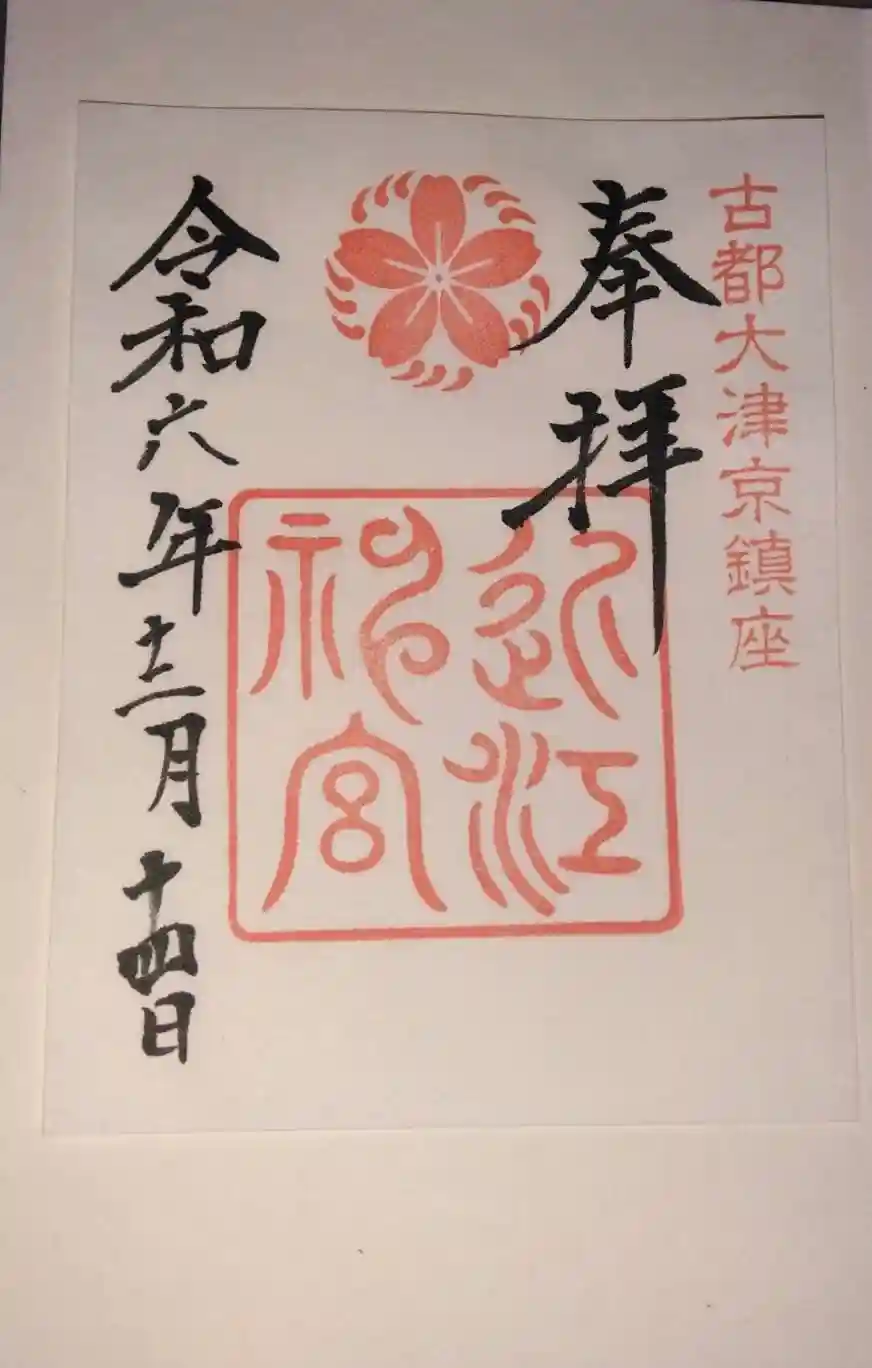 古都大津京鎮座
奉拝
近江
神宮
令和六年十二月十四日